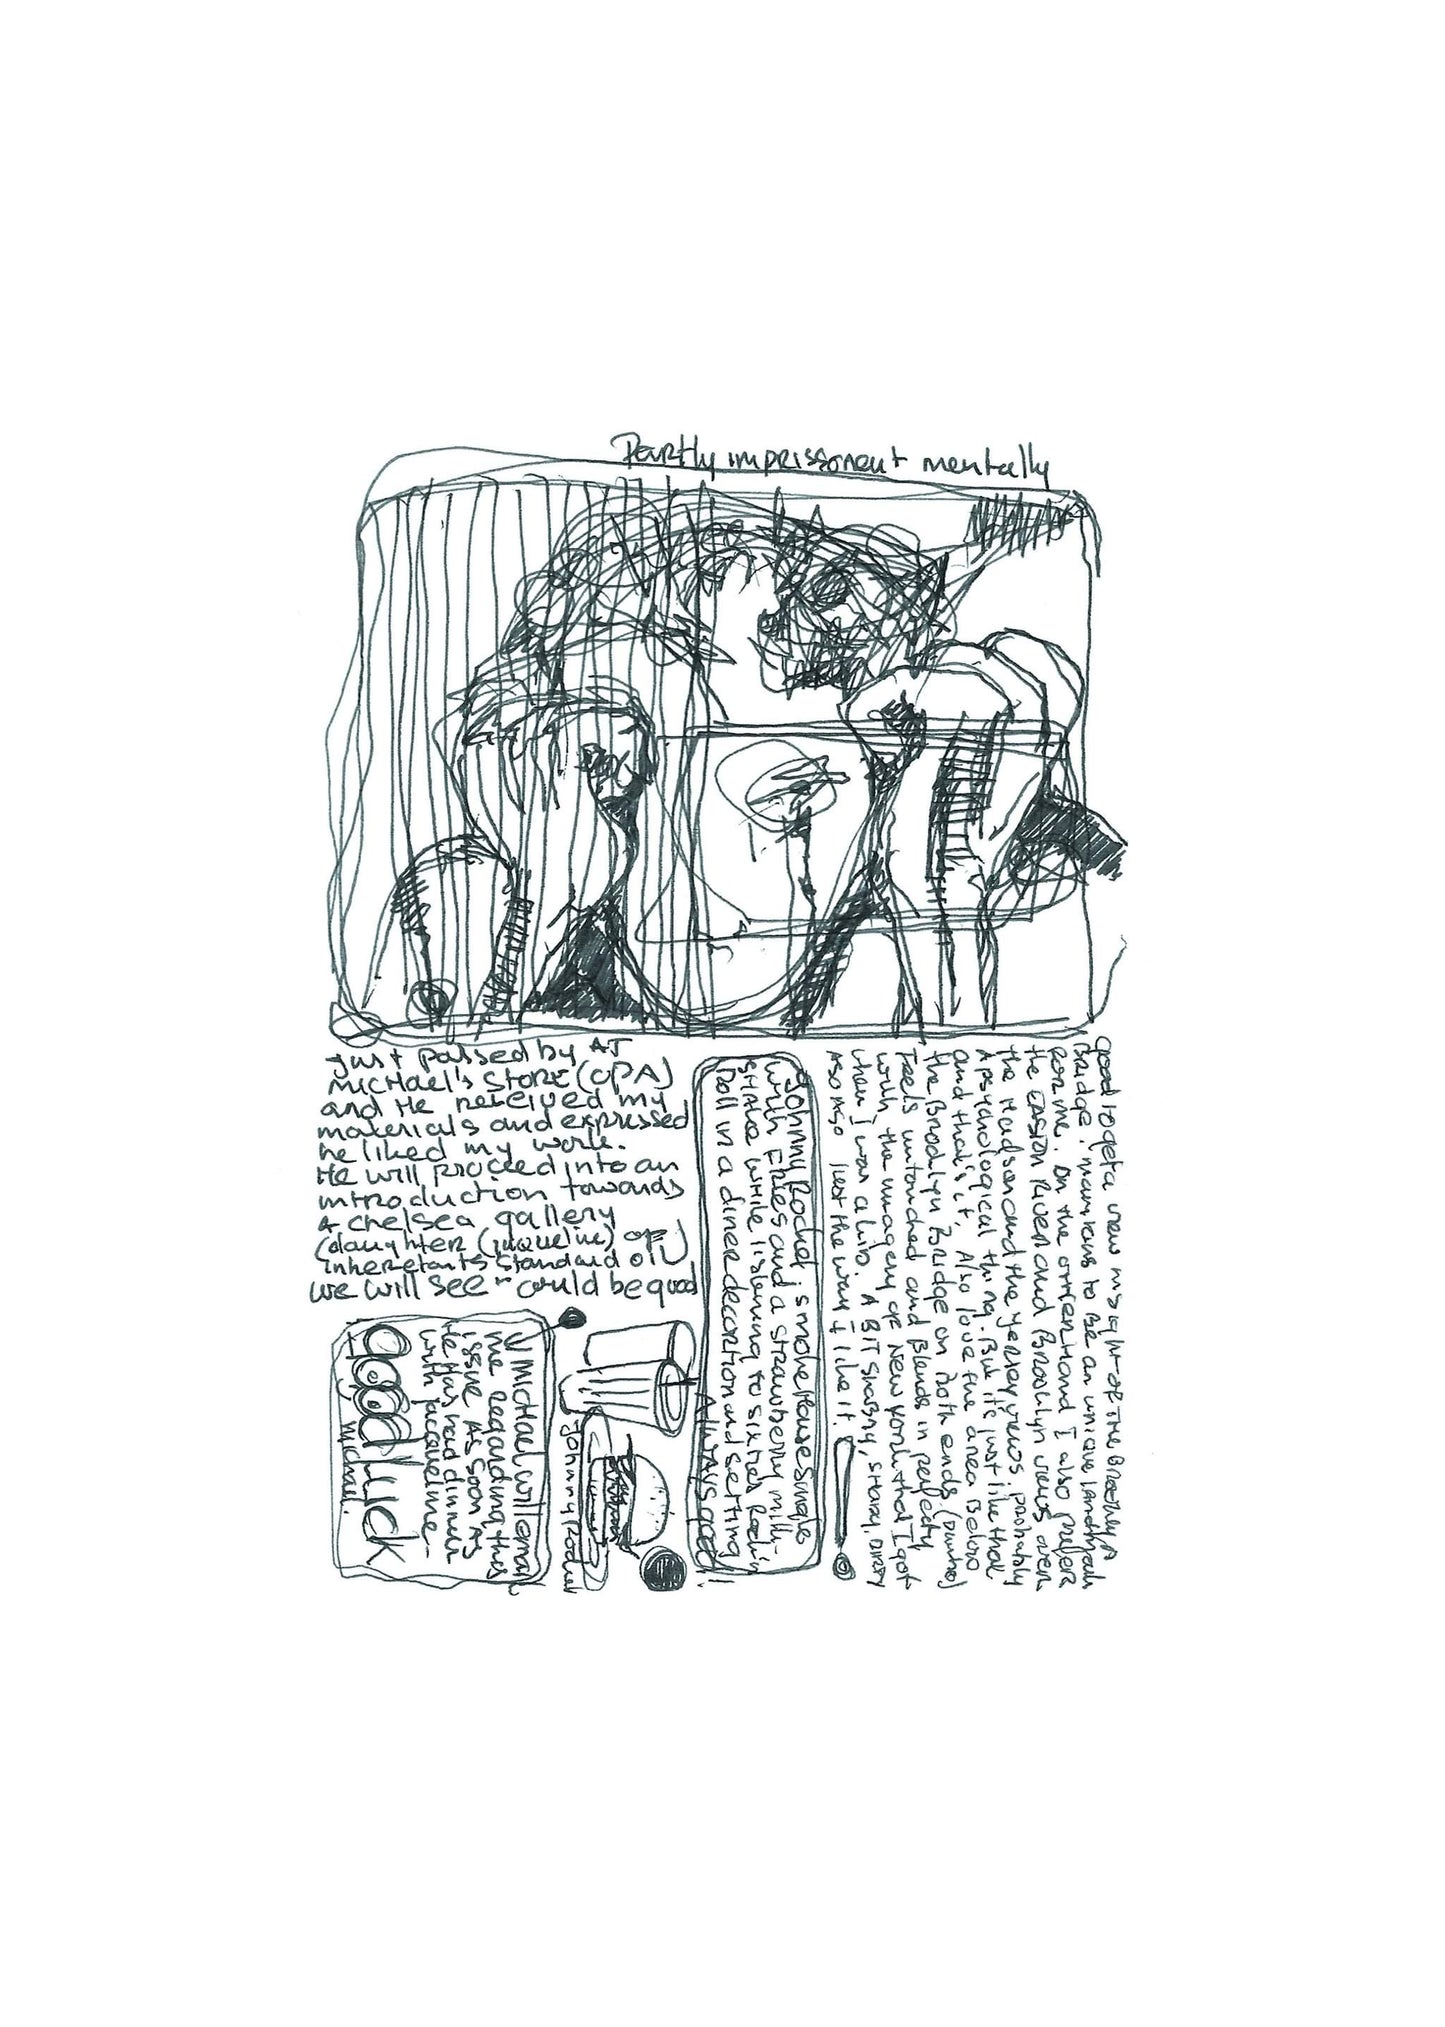 Partly imprissonent mentally
Just passed by AT
MICHael's STORE (OPA)
and He received my
materials and expressed
he liked my work.
He will proceed into an
introduction towards
A Chelsea gallery
(daughter (jaqueline) of
inheretants Standard OIL)
we will see - could be good
JohnnyRocket; smokeHouse Single
with FRIES and a strawberry milk-
SHAKE WHILE listening to sixties Rock'n
Roll in a diner decortion and setting
Always good!
Good to get a view insight of THE BROOKLYN
Bridge. it remains to Be an unique landmark
FOR me. On the other Hand I also prefer
the EASTON RIVER and Brooklyn views over
the Hudson and the Yersey views probably
A psychological thing. But it's just like that
and that's it. Also love the area Below
the Brooklyn Bridge on Both ends. (Dumbo)
Feels untouched and Blends in perfectly
with the imagery of New York that I got
when I was a kid. A BIT SHABBY, SHADY, DIRTY
ASO ASO just the way I like it!
MICHael will email
me regarding this
issue AS SOON AS
He Has had dinner
with Jacqueline-
Good luck
Michael.
Johnny Rocket